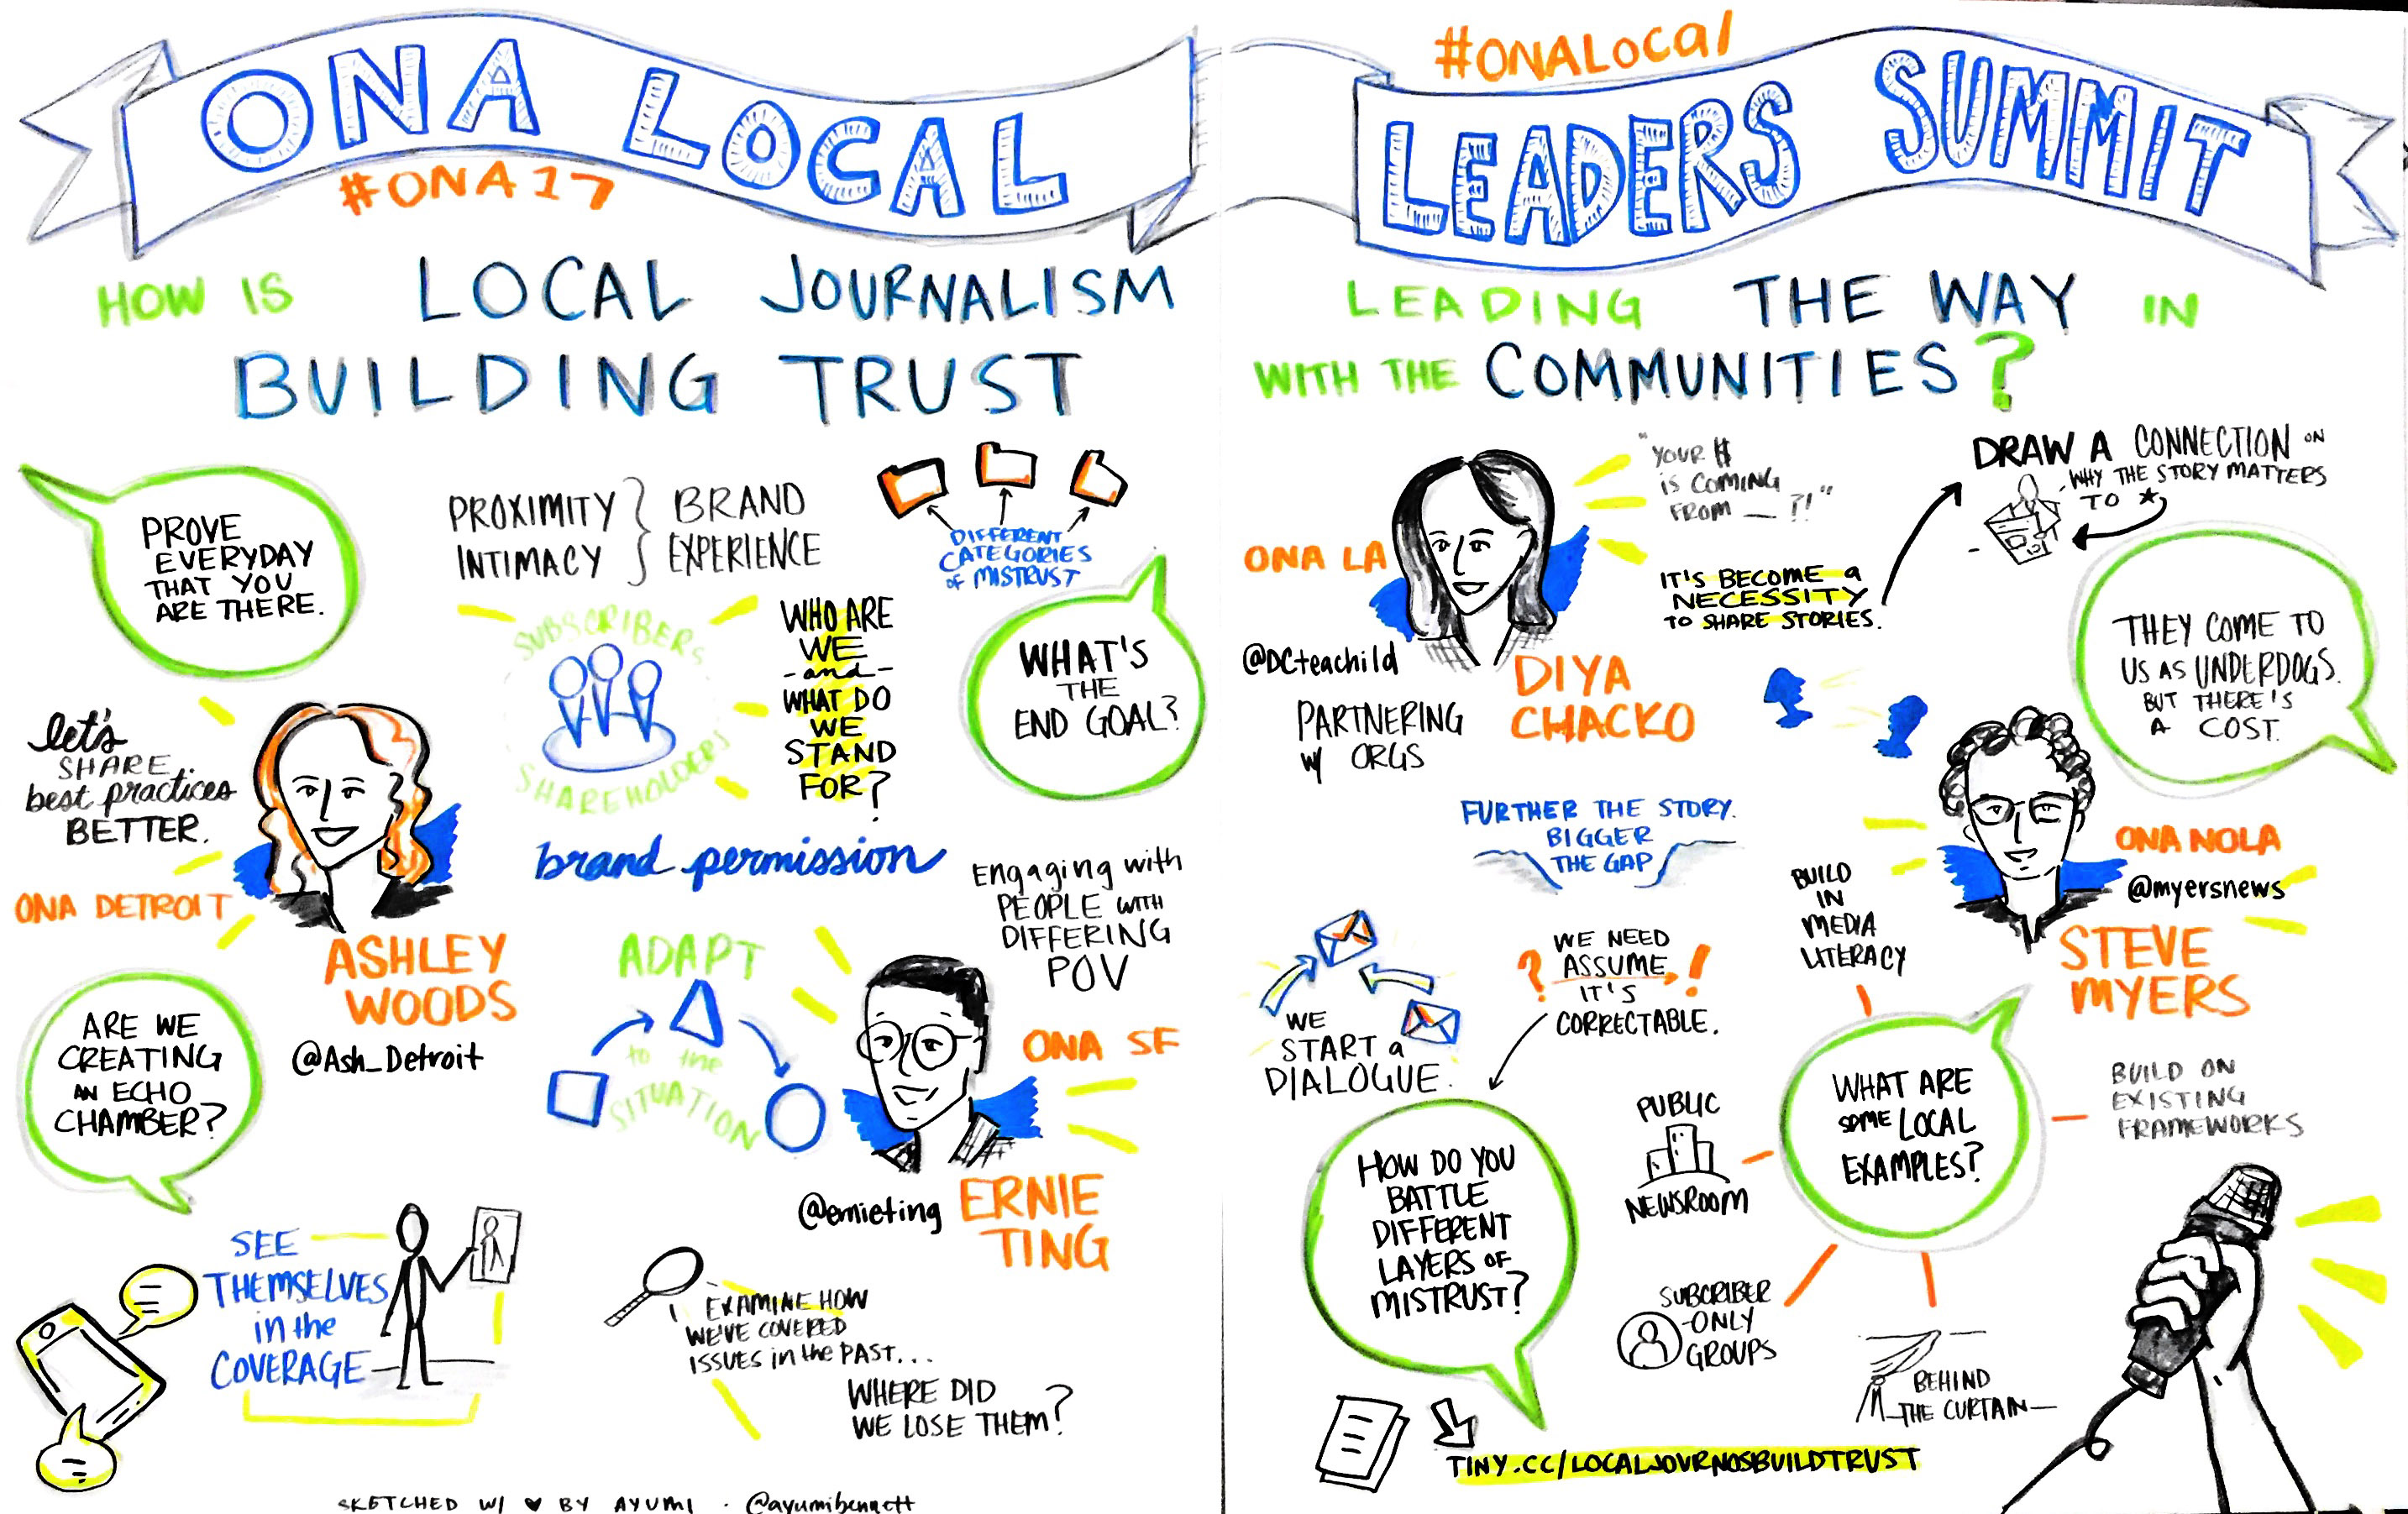 ONA LOCAL
#ONA17
HOW IS LOCAL JOURNALISM
BUILDING TRUST
#ONALocal
LEADERS SUMMIT
LEADING THE WAY IN
WITH THE COMMUNITIES?
PROVE
EVERYDAY
THAT YOU
ARE THERE.
PROXIMITY
INTIMACY
BRAND
EXPERIENCE
DIFFERENT
CATEGORIES
OF MISTRUST
SUBSCRIBERS
SHAREHOLDERS
WHO ARE
WE
-and-
WHAT DO
WE
STAND
FOR?
WHAT'S
THE
END GOAL?
let's
SHARE
best practices
BETTER.
ONA DETROIT
ASHLEY
WOODS
@Ash_Detroit
brand permission
Engaging with
PEOPLE WITH
DIFFERING
POV
ADAPT
to the
SITUATION
ONA SF
@ernieting
ERNIE
TING
ARE WE
CREATING
AN ECHO
CHAMBER?
SEE
THEMSELVES
in the
COVERAGE
EXAMINE HOW
WE'VE COVERED
ISSUES in the PAST...
WHERE DID
WE LOSE THEM?
SKETCHED W/ ♥ BY AYUMI . @ayumibennett
"YOUR $
IS COMING
FROM __ ?!"
ONA LA
@DCteachild
DIYA
CHACKO
PARTNERING
W/ ORGS
IT'S BECOME a
NECESSITY
TO SHARE STORIES.
DRAW A CONNECTION ON
WHY THE STORY MATTERS
TO ★
THEY COME TO
US AS UNDERDOGS.
BUT THERE'S
A COST.
FURTHER THE STORY.
BIGGER
THE GAP
ONA NOLA
@myersnews
STEVE
MYERS
BUILD
IN
MEDIA
LITERACY
WE
START a
DIALOGUE.
? WE NEED !
ASSUME
IT'S
CORRECTABLE.
HOW DO YOU
BATTLE
DIFFERENT
LAYERS OF
MISTRUST?
WHAT ARE
SOME LOCAL
EXAMPLES?
BUILD ON
EXISTING
FRAMEWORKS
PUBLIC
NEWSROOM
SUBCRIBER
-ONLY
GROUPS
BEHIND
THE CURTAIN
TINY.CC/LOCALJOURNOSBUILDTRUST